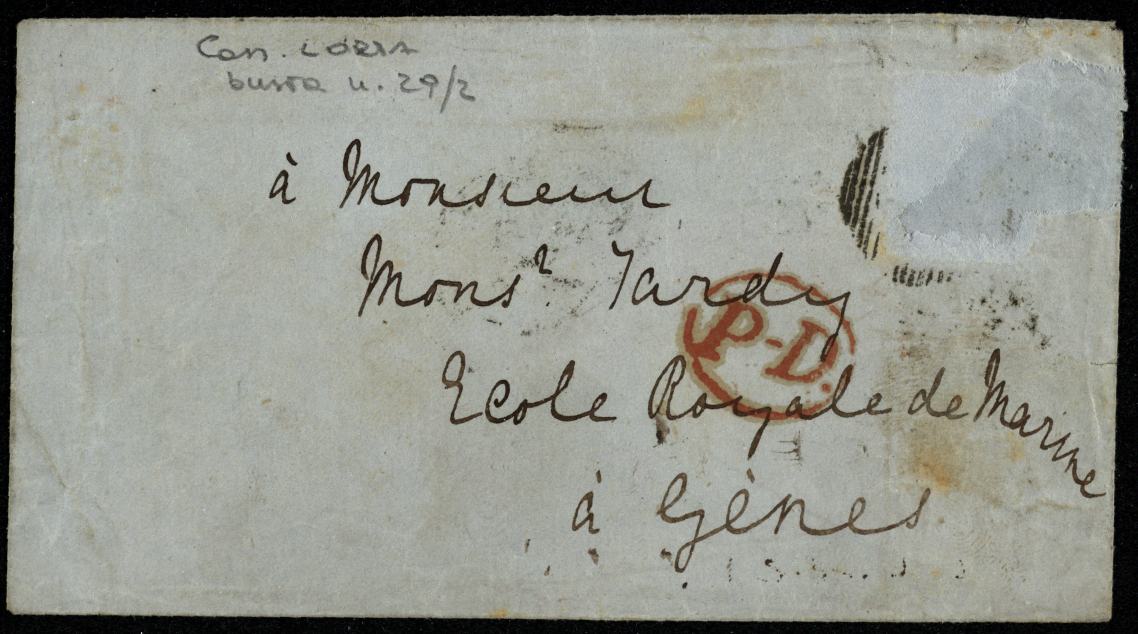 Cass. LORIA
busta n. 29/2
à Monsieur
Monsr Tardy
P.D.
Ecole Royale de Marine
à Gènes